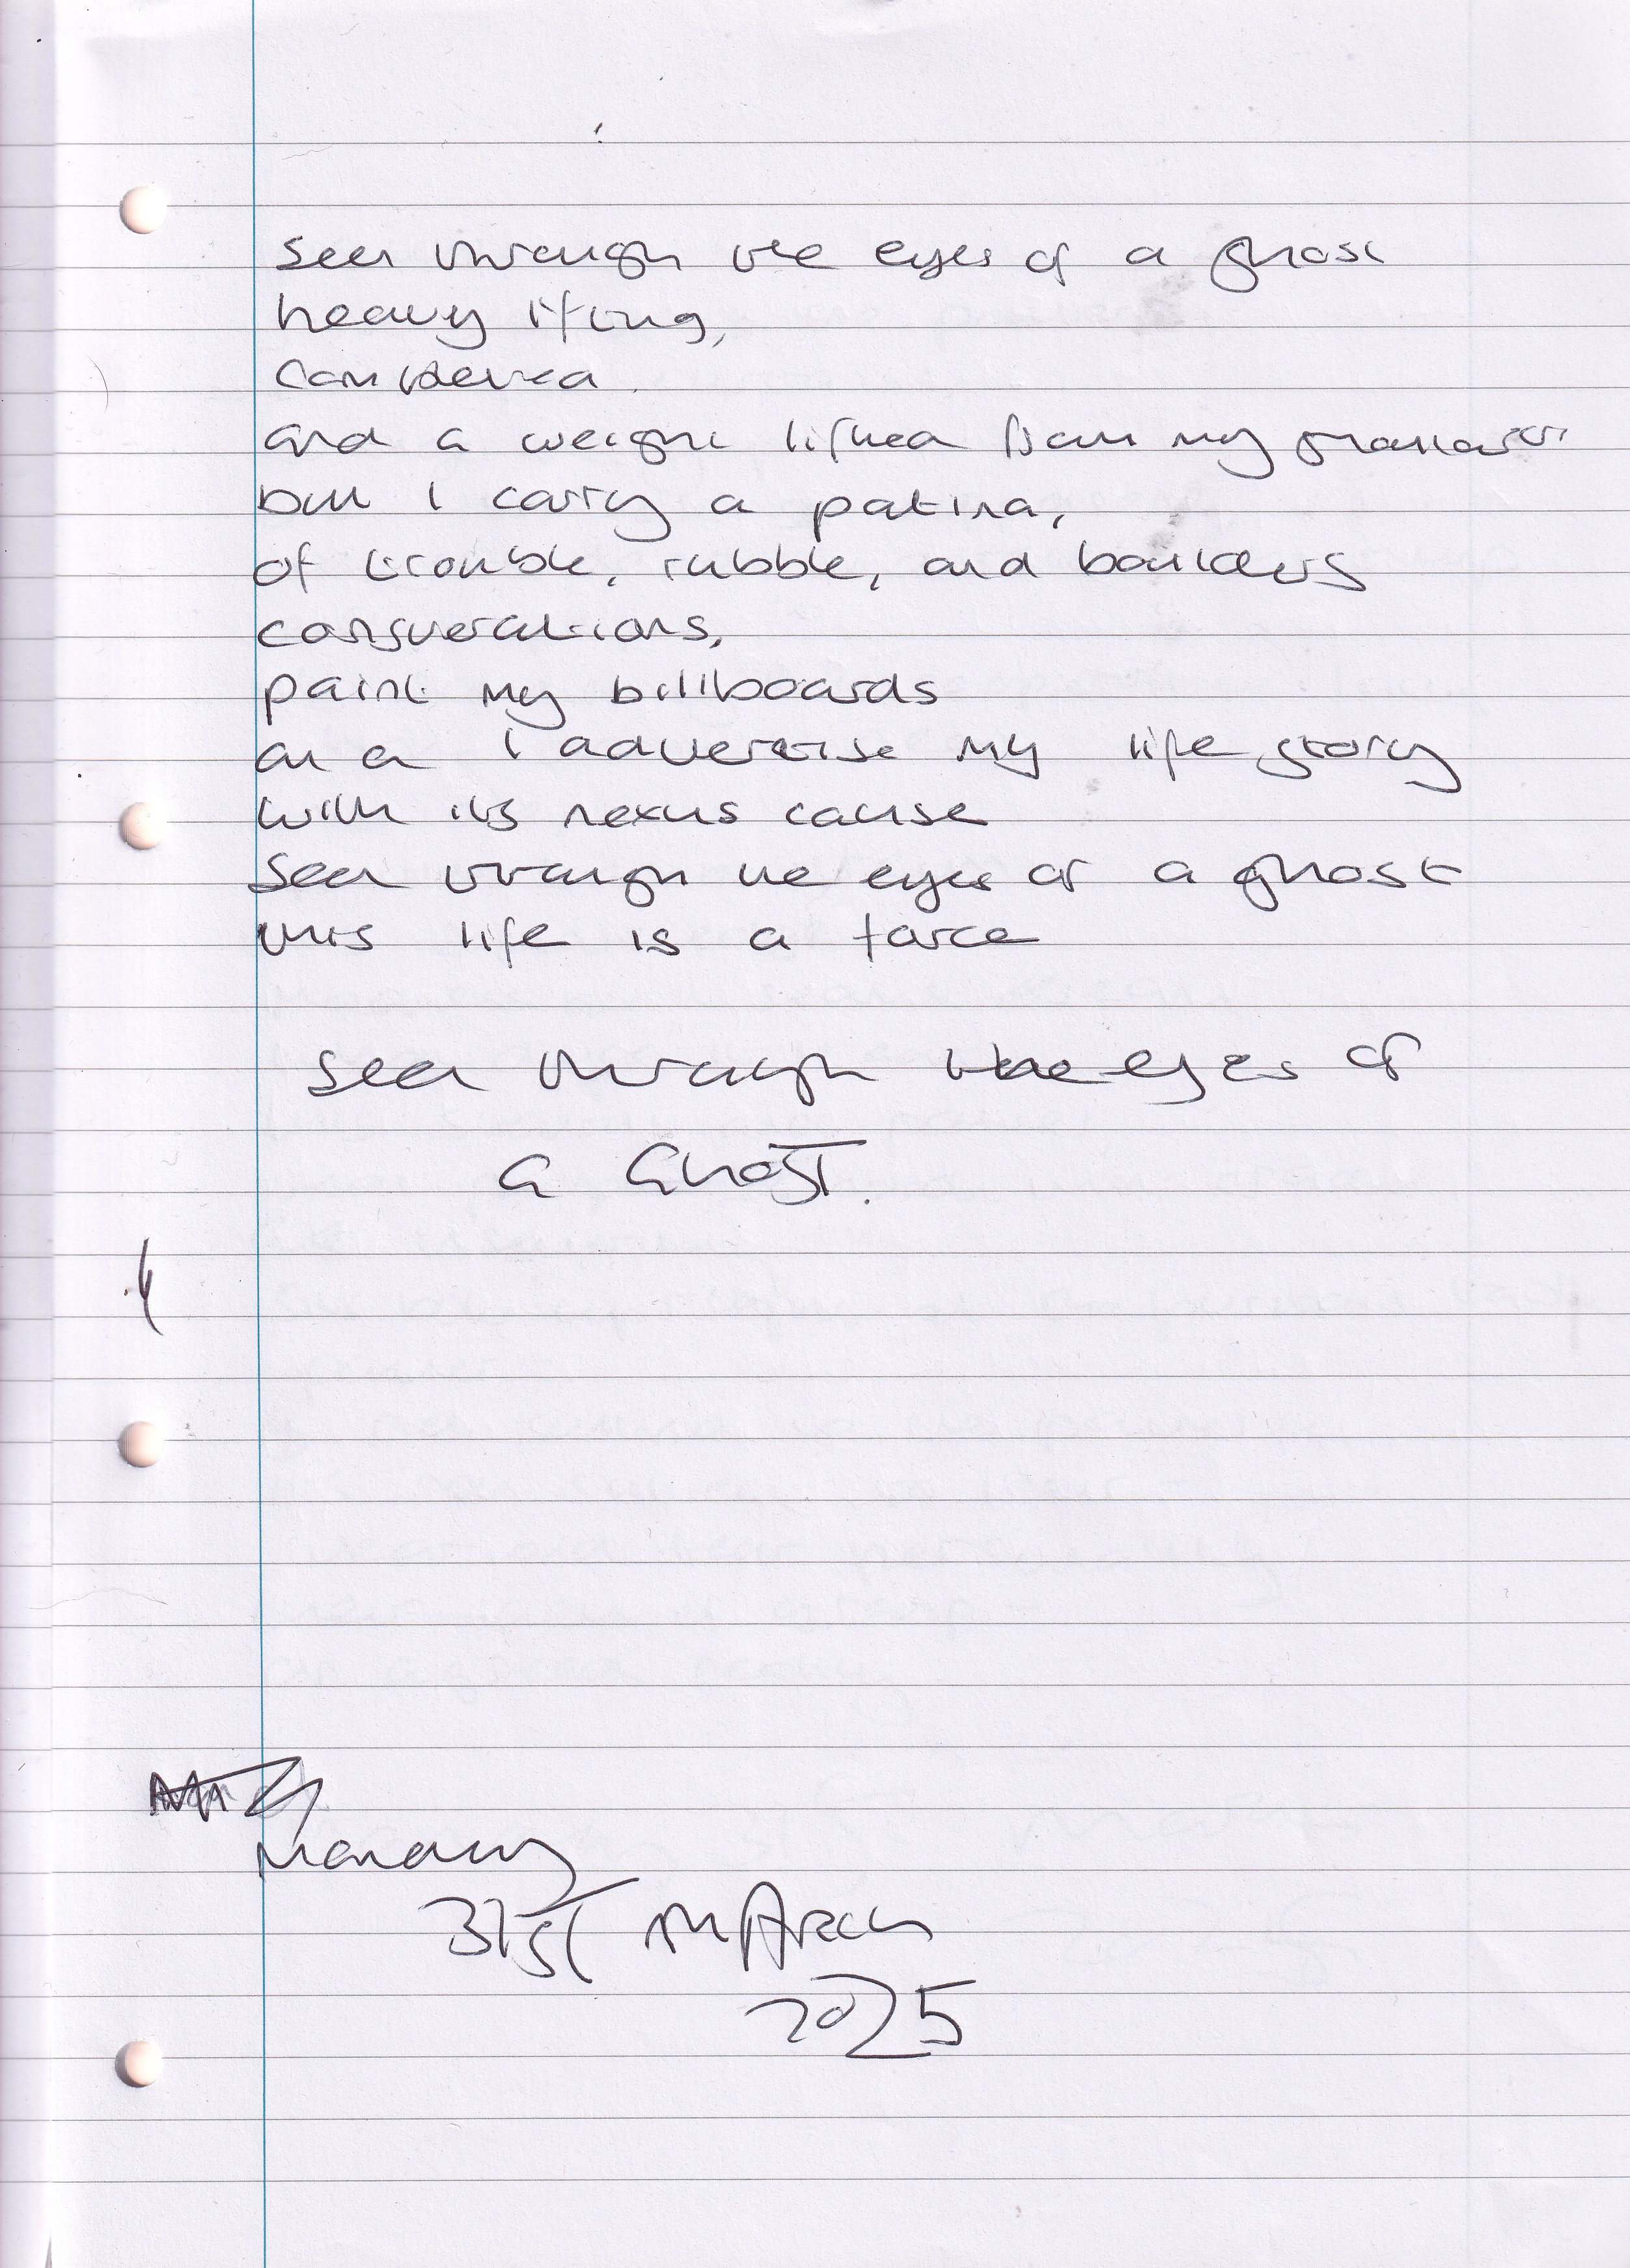 seen through the eyes of a ghost
heavy lifting,
considered
and a weight lifted from my shoulders
but I carry a patina,
of trouble, rubble, and boulders
conversations,
paint my billboards
and I advertise my life story
with its nexus cause
seen through the eyes of a ghost
this life is a farce
seen through the eyes of
a Ghost.
Monday
31st March
2025